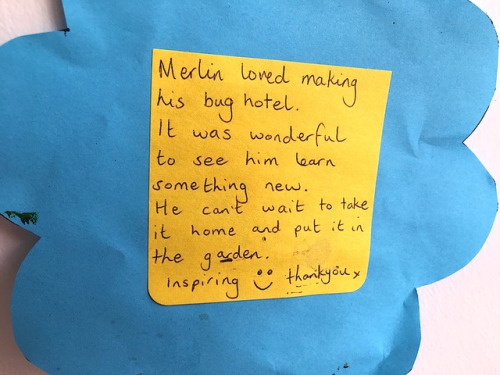 Merlin loved making
his bug hotel.
It was wonderful
to see him learn
something new.
He can't wait to take
it home and put it in
the garden.
Inspiring thankyou x